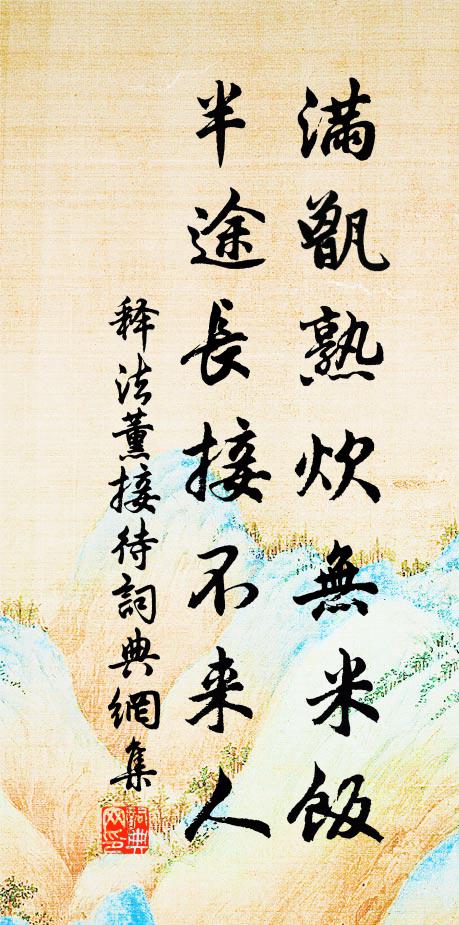 滿甑熟炊無米飯
半途長接不来人
释法薰接待詞典網集
詞典网印